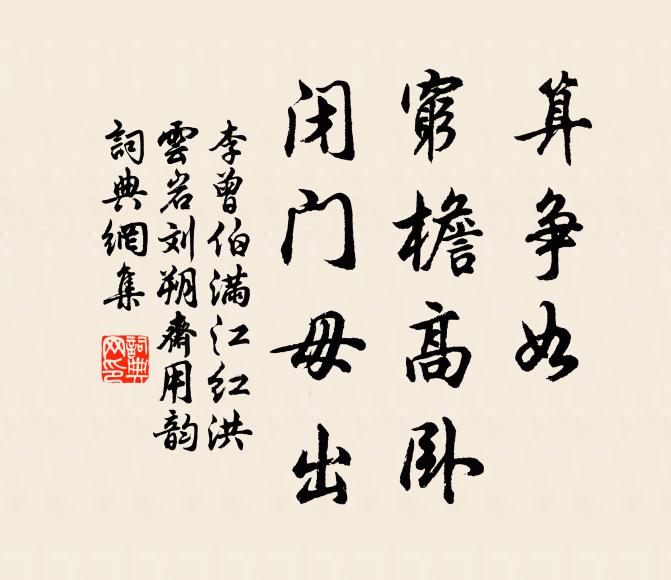 算争如
窮檐高卧
闭门毋出
李曾伯满江红洪
雲岩刘朔齋用韵
詞典網集
詞典网印